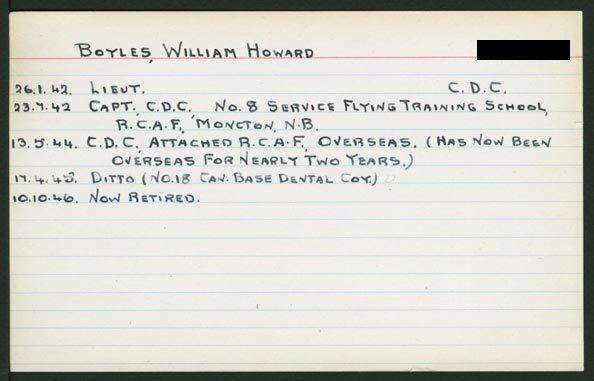 BOYLES, WILLIAM HOWARD
26.1.42. LIEUT. C.D.C.
23.7.42 CAPT., C.D.C., No. 8 SERVICE FLYING TRAINING SCHOOL,
R.C.A.F., MONCTON, N.B.
13.5.44. C.D.C. ATTACHED R.C.A.F. OVERSEAS. (HAS NOW BEEN
OVERSEAS FOR NEARLY TWO YEARS.)
17.4.45. DITTO (No.18 CAN. BASE DENTAL COY.)
10.10.46. NOW RETIRED.